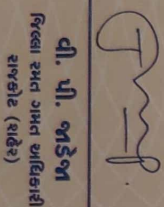 વી. પી. જાડેજા
જિલ્લા રમત ગમત અધિકારી
રાજકોટ (શહેર)